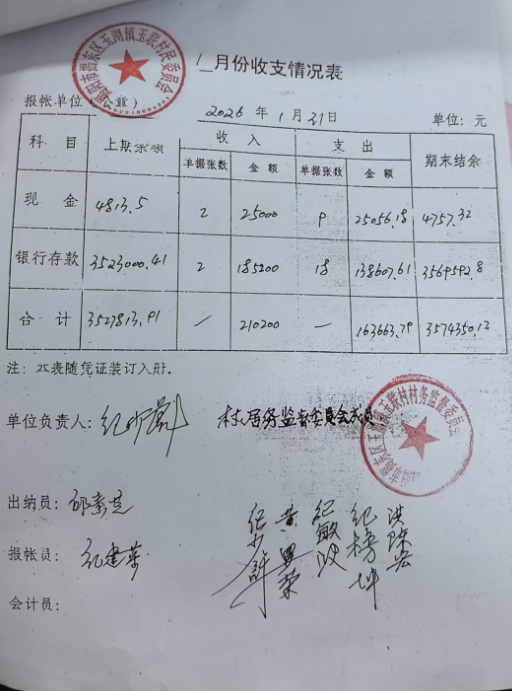 1月份收支情况表
报帐单位(盖章)
2026年1月31日 单位:元
科目 上期余额 收入 支出 期末结余
单据张数 金额 单据张数 金额
现金 4813.5 2 25000 9 25056.18 4757.32
银行存款 3523000.41 2 185200 18 138607.61 3569592.8
合计 3527813.91 / 210200 — 163663.79 3574350.12
注:本表随凭证装订入册.
单位负责人: 村居务监督委员会成员
玉湖镇玉联村村务监督委员会
出纳员:
报帐员:
会计员: